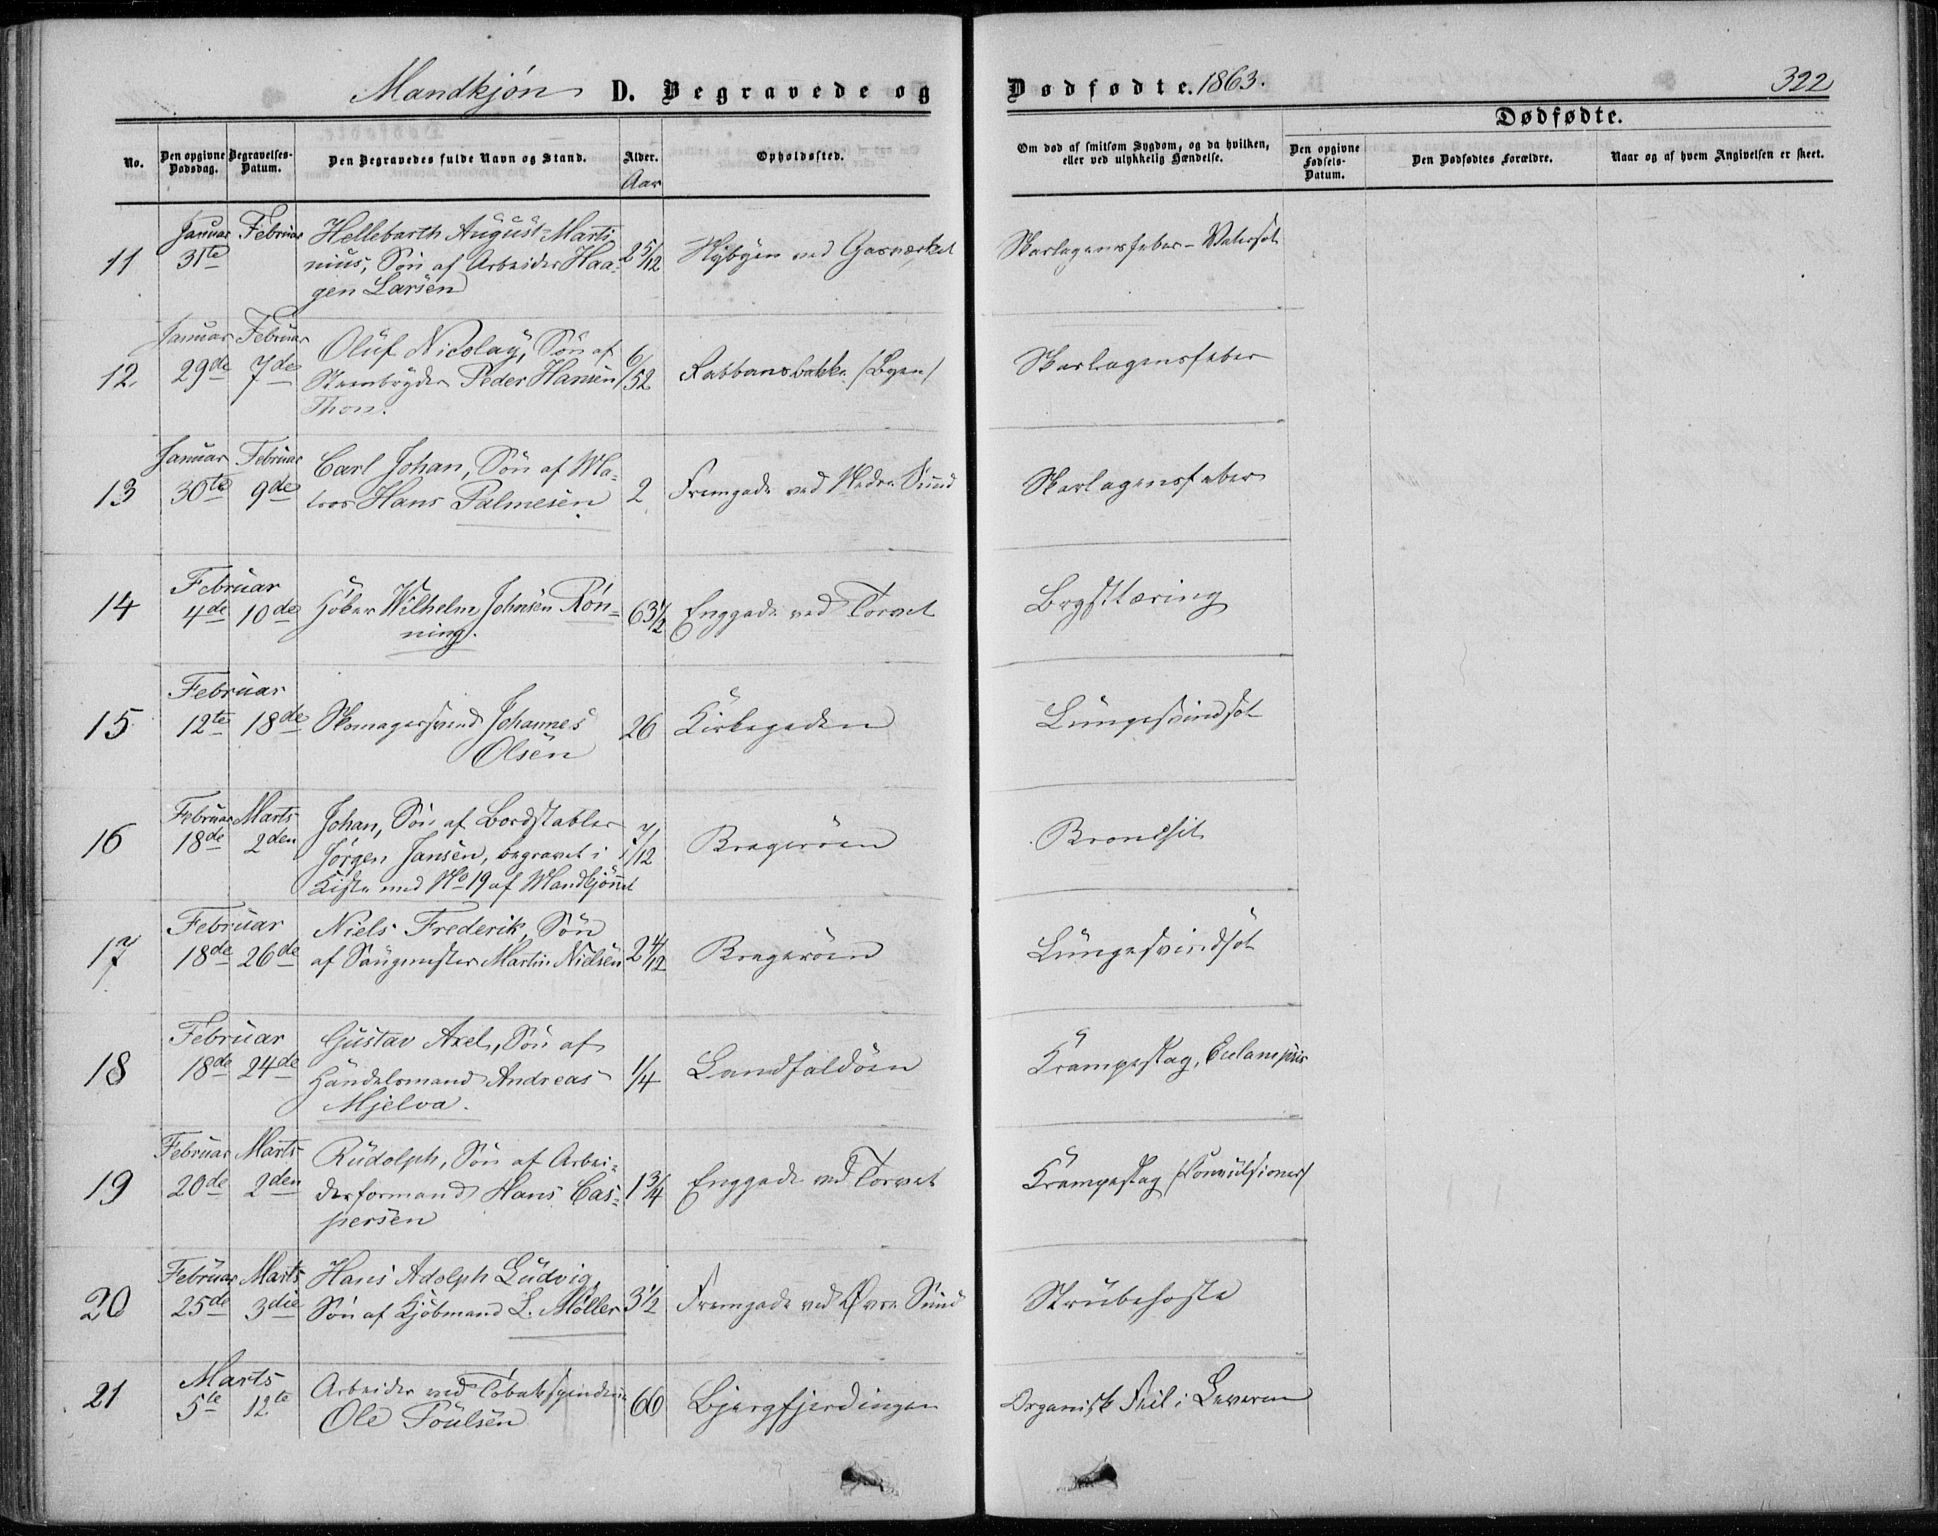 Mandkjøn D. Begravede og Dødfødte. 1863. 322
Dødfødte.
No. Den opgivne Dødsdag. Begravelses-Datum. Den Begravedes fulde Navn og Stand. Alder. Opholdssted. Om død af smitsom Sygdom, og da hvilken, eller ved ulykkelig Hændelse. Den opgivne Fødsels-Datum. Den Dødfødtes Forældre. Naar og af hvem Angivelsen er skeet.
Aar
Januar Februar Hellebarth August Marti-
11 31te nius, Søn af Arbeider Haa- 2 5/12 Nybyen ved Gasværket Skarlagensfeber - Vatersot
gen Larsen
Januar Februar Oluf Nicolay, Søn af
12. 29de 7de Peder Hansen 6/52 (Byen) Skarlagensfeber
Thon.
Januar Februar Carl Johan, Søn af Ma-
13 30te 9de tros Hans Palmesen 2 Fremgade ved Nedre Sund Skarlagensfeber
Februar
14 4de 10de Wilhelm Johnsen Røn- 63 1/2 Enggade ved Torvet Brysttæring
ning.
Februar
15 12te 18de Skomagersvend Johannes 26 Kirkegaden Lungesvindsot
Olsen
Februar Marts Johan, Søn af Bordstabler
16 18de 2den Jørgen Jansen, begravet i 7/12 Bragerøen Bronchit
Kiste med No 19 af Mandkjønnet
Februar Niels Frederik, Søn
17 18de 26de af Saugmester Martin Nielsen 2 4/12 Bragerøen Lungesvindsot
Februar Gustav Axel, Søn af
18 18de 24de Handelsmand Andreas 1/4 Landfaldøen Krampeslag,
Mjelva.
Februar Marts Rudolph, Søn af Arbei-
19 20de 2den derformand Hans Cas- 1 3/4 Enggade ved Torvet Krampeslag (Convulsioner)
persen
Februar Marts Hans Adolph Ludvig,
20 25de 3die Søn af Kjøbmand L. Møller 3 1/2 Fremgade ved Øvre Sund Strubehoste
Marts Arbeider ved Tobakspinderi
21 5te 12te Ole Poulsen 66 Bjergfjerdingen Organisk Feil i Leveren